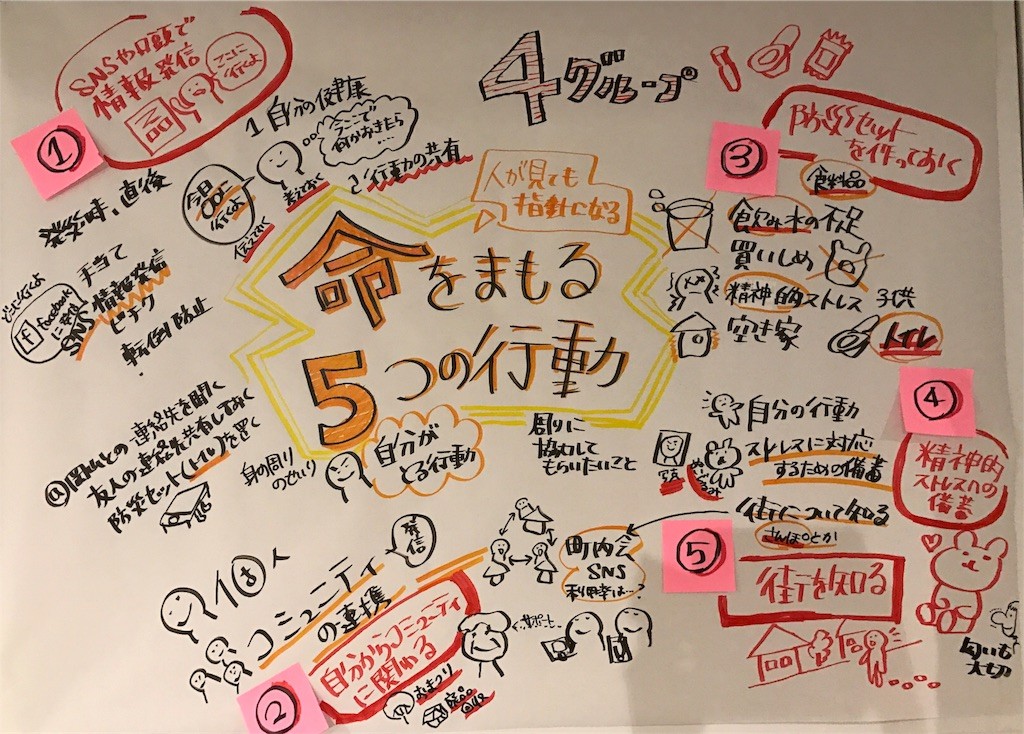 4グループ
①
SNSや口頭で
情報発信
ここに
行くよ
1 自分の健康
今ここで
何かおきたら…
考えておく
2 行動の共有
今日
行くよ
伝えておく
発災時、直後
手当て
SNS 情報発信
どこに行くよ
facebook
に書込
転倒防止
人が見ても
指針になる
命をまもる
5つの行動
自分が
とる行動
身の周り
のせいり
周りに
協力して
もらいたいこと
連絡先を聞く
友人の連絡先共有しておく
防災セット(トイレ)を置く
個人
コミュニティ
の連携
発信
②
自分からコミュニティ
に関わる
おまつり
サポート
町内会
SNS
利用率は…?
③
防災セット
を作っておく
食料品
飲み水の不足
買いしめ
精神的ストレス 子供
空き家
トイレ
④
精神的
ストレスへの
備蓄
自分の行動
ストレスに対応
するための備蓄
写真
ぬいぐるみ
街について知る
さんぽとか
⑤
街を知る
匂いも
大切